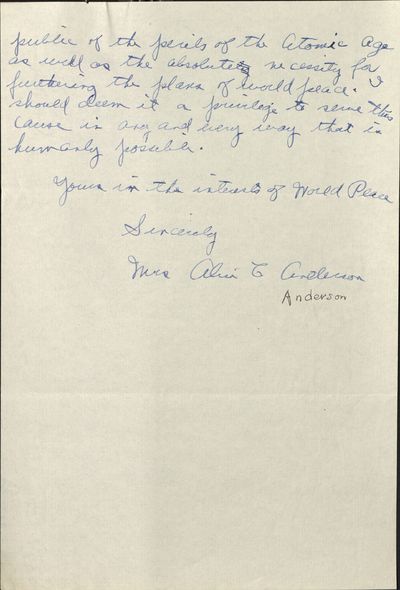 public of the perils of the Atomic Age
as well as the absolute necessity for
furthering the plans of world peace. I
should deem it a privilege to serve this
cause in any and every way that is
humanly possible.
Yours in the interests of World Peace
Sincerely
Mrs C Anderson
Anderson